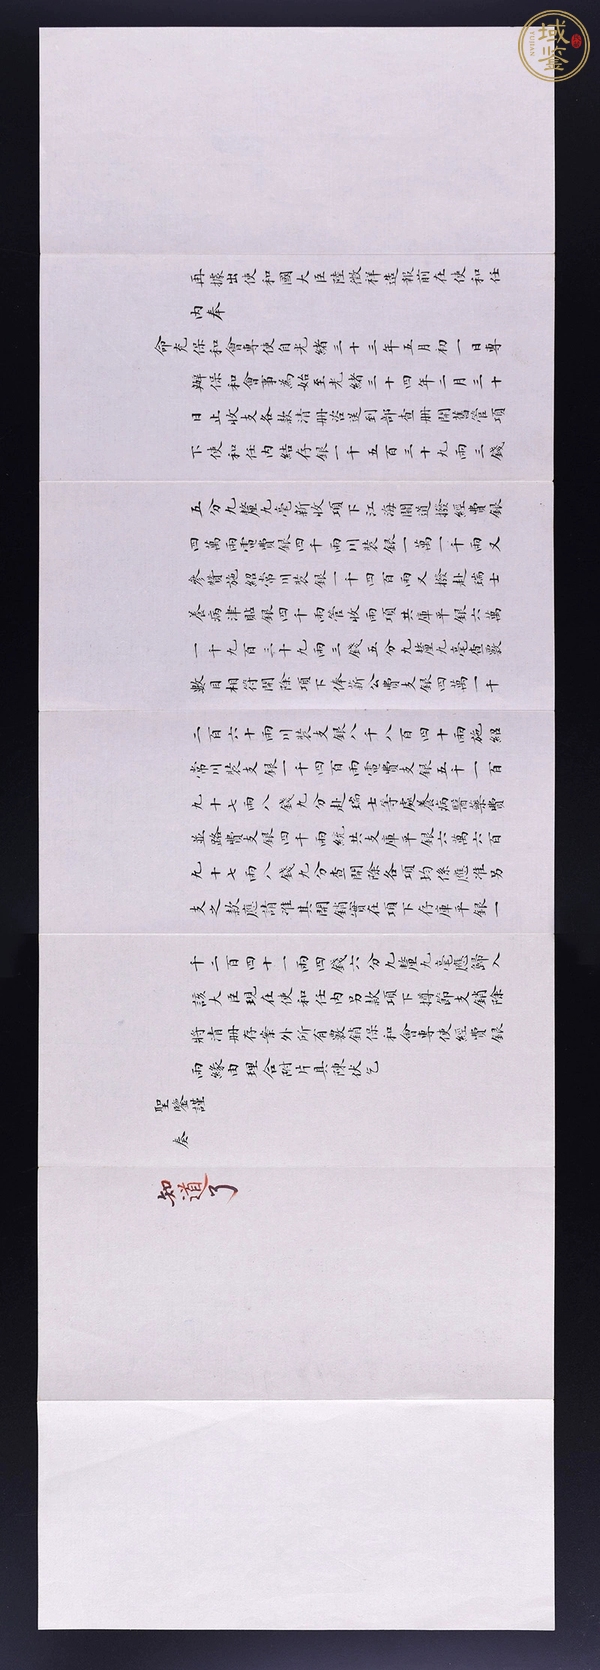 再據出使和國大臣陸徵祥造報前在使和任
內奉
命充保和會專使自光緒三十三年五月初一日專
辦保和會事為始至光緒三十四年二月三十
日止收支各款清冊咨送到部查冊開舊管項
下使和任內結存銀一千五百三十九兩三錢
五分九釐九毫新收項下江海關道撥經費銀
四萬兩電費銀四千兩川裝銀一萬一千兩又
參贊施紹常川裝銀一千四百兩又撥赴瑞士
養病津貼銀四千兩管收兩項共庫平銀六萬
一千九百三十九兩三錢五分九釐九毫查覈
數目相符開除項下俸薪公費支銀四萬一千
二百六十兩川裝支銀八千八百四十兩施紹
常川裝支銀一千四百兩電費支銀五千一百
九十七兩八錢九分赴瑞士等處養病醫藥費
並路費支銀四千兩統共支庫平銀六萬六百
九十七兩八錢九分查開除各項均係應准另
支之款應請准其開銷實在項下存庫平銀一
千二百四十一兩四錢六分九釐九毫應歸入
該大臣現在使和任內另款項下撙節支銷除
將清冊存案外所有覈銷保和會專使經費銀
兩緣由理合附片具陳伏乞
聖鑒謹
奏
知道了
域鑒
YUJIAN